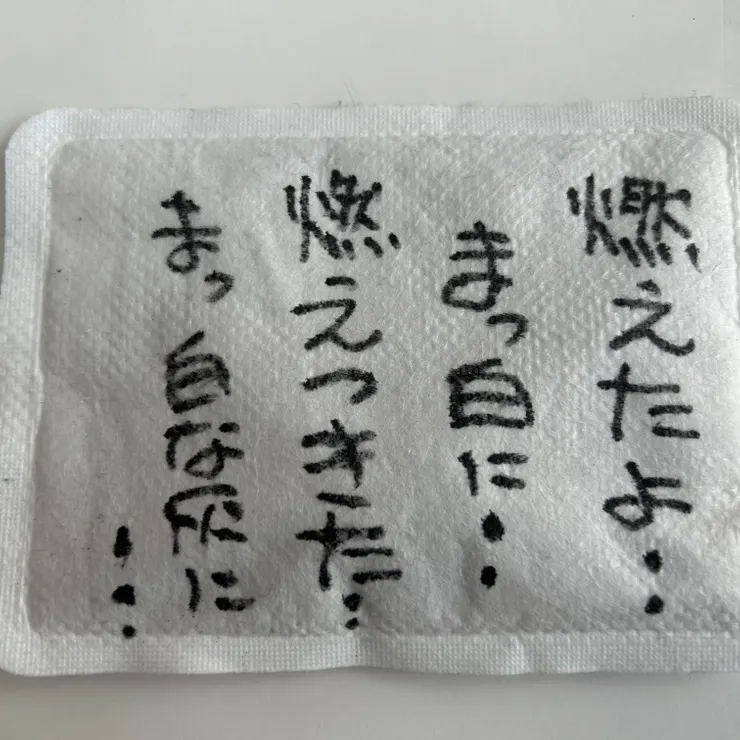 燃えたよ‥
まっ白に‥
燃えつきた‥
まっ白な灰に
‥‥